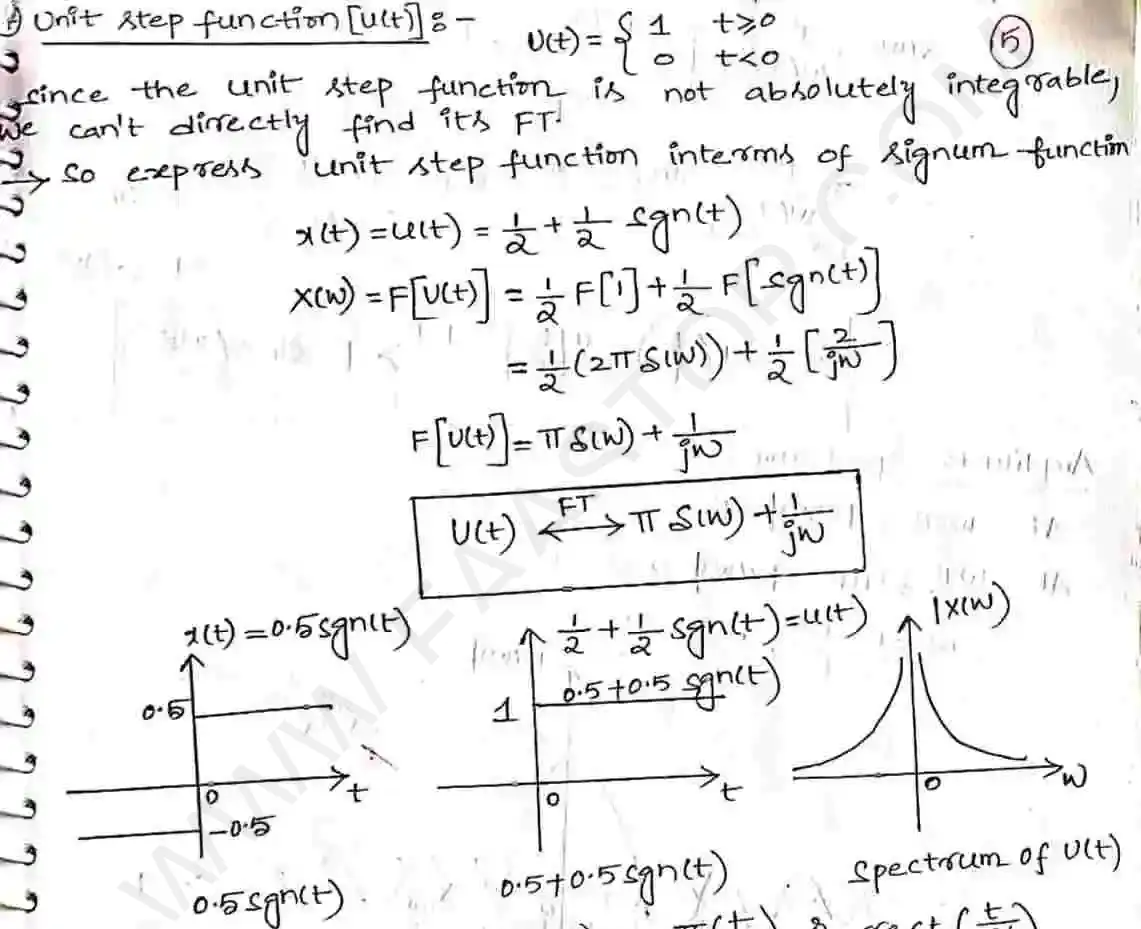 Unit step function [U(t)] :- U(t) = { 1 t≥0
0 t<0
5
since the unit step function is not absolutely integrable,
we can't directly find its FT.
→ so express unit step function interms of signum function
x(t) = u(t) = 1/2 + 1/2 sgn(t)
X(w) = F[U(t)] = 1/2 F[1] + 1/2 F[sgn(t)]
= 1/2 (2π δ(w)) + 1/2 [2/jw]
F[U(t)] = π δ(w) + 1/jw
U(t) ←FT→ π δ(w) + 1/jw
x(t) = 0.5 sgn(t)
0.5
0
t
-0.5
0.5 sgn(t)
1/2 + 1/2 sgn(t) = u(t)
0.5+0.5 sgn(t)
1
0
t
0.5+0.5 sgn(t)
|X(w)
0
w
spectrum of U(t)
WWW.FAASTOP.COM